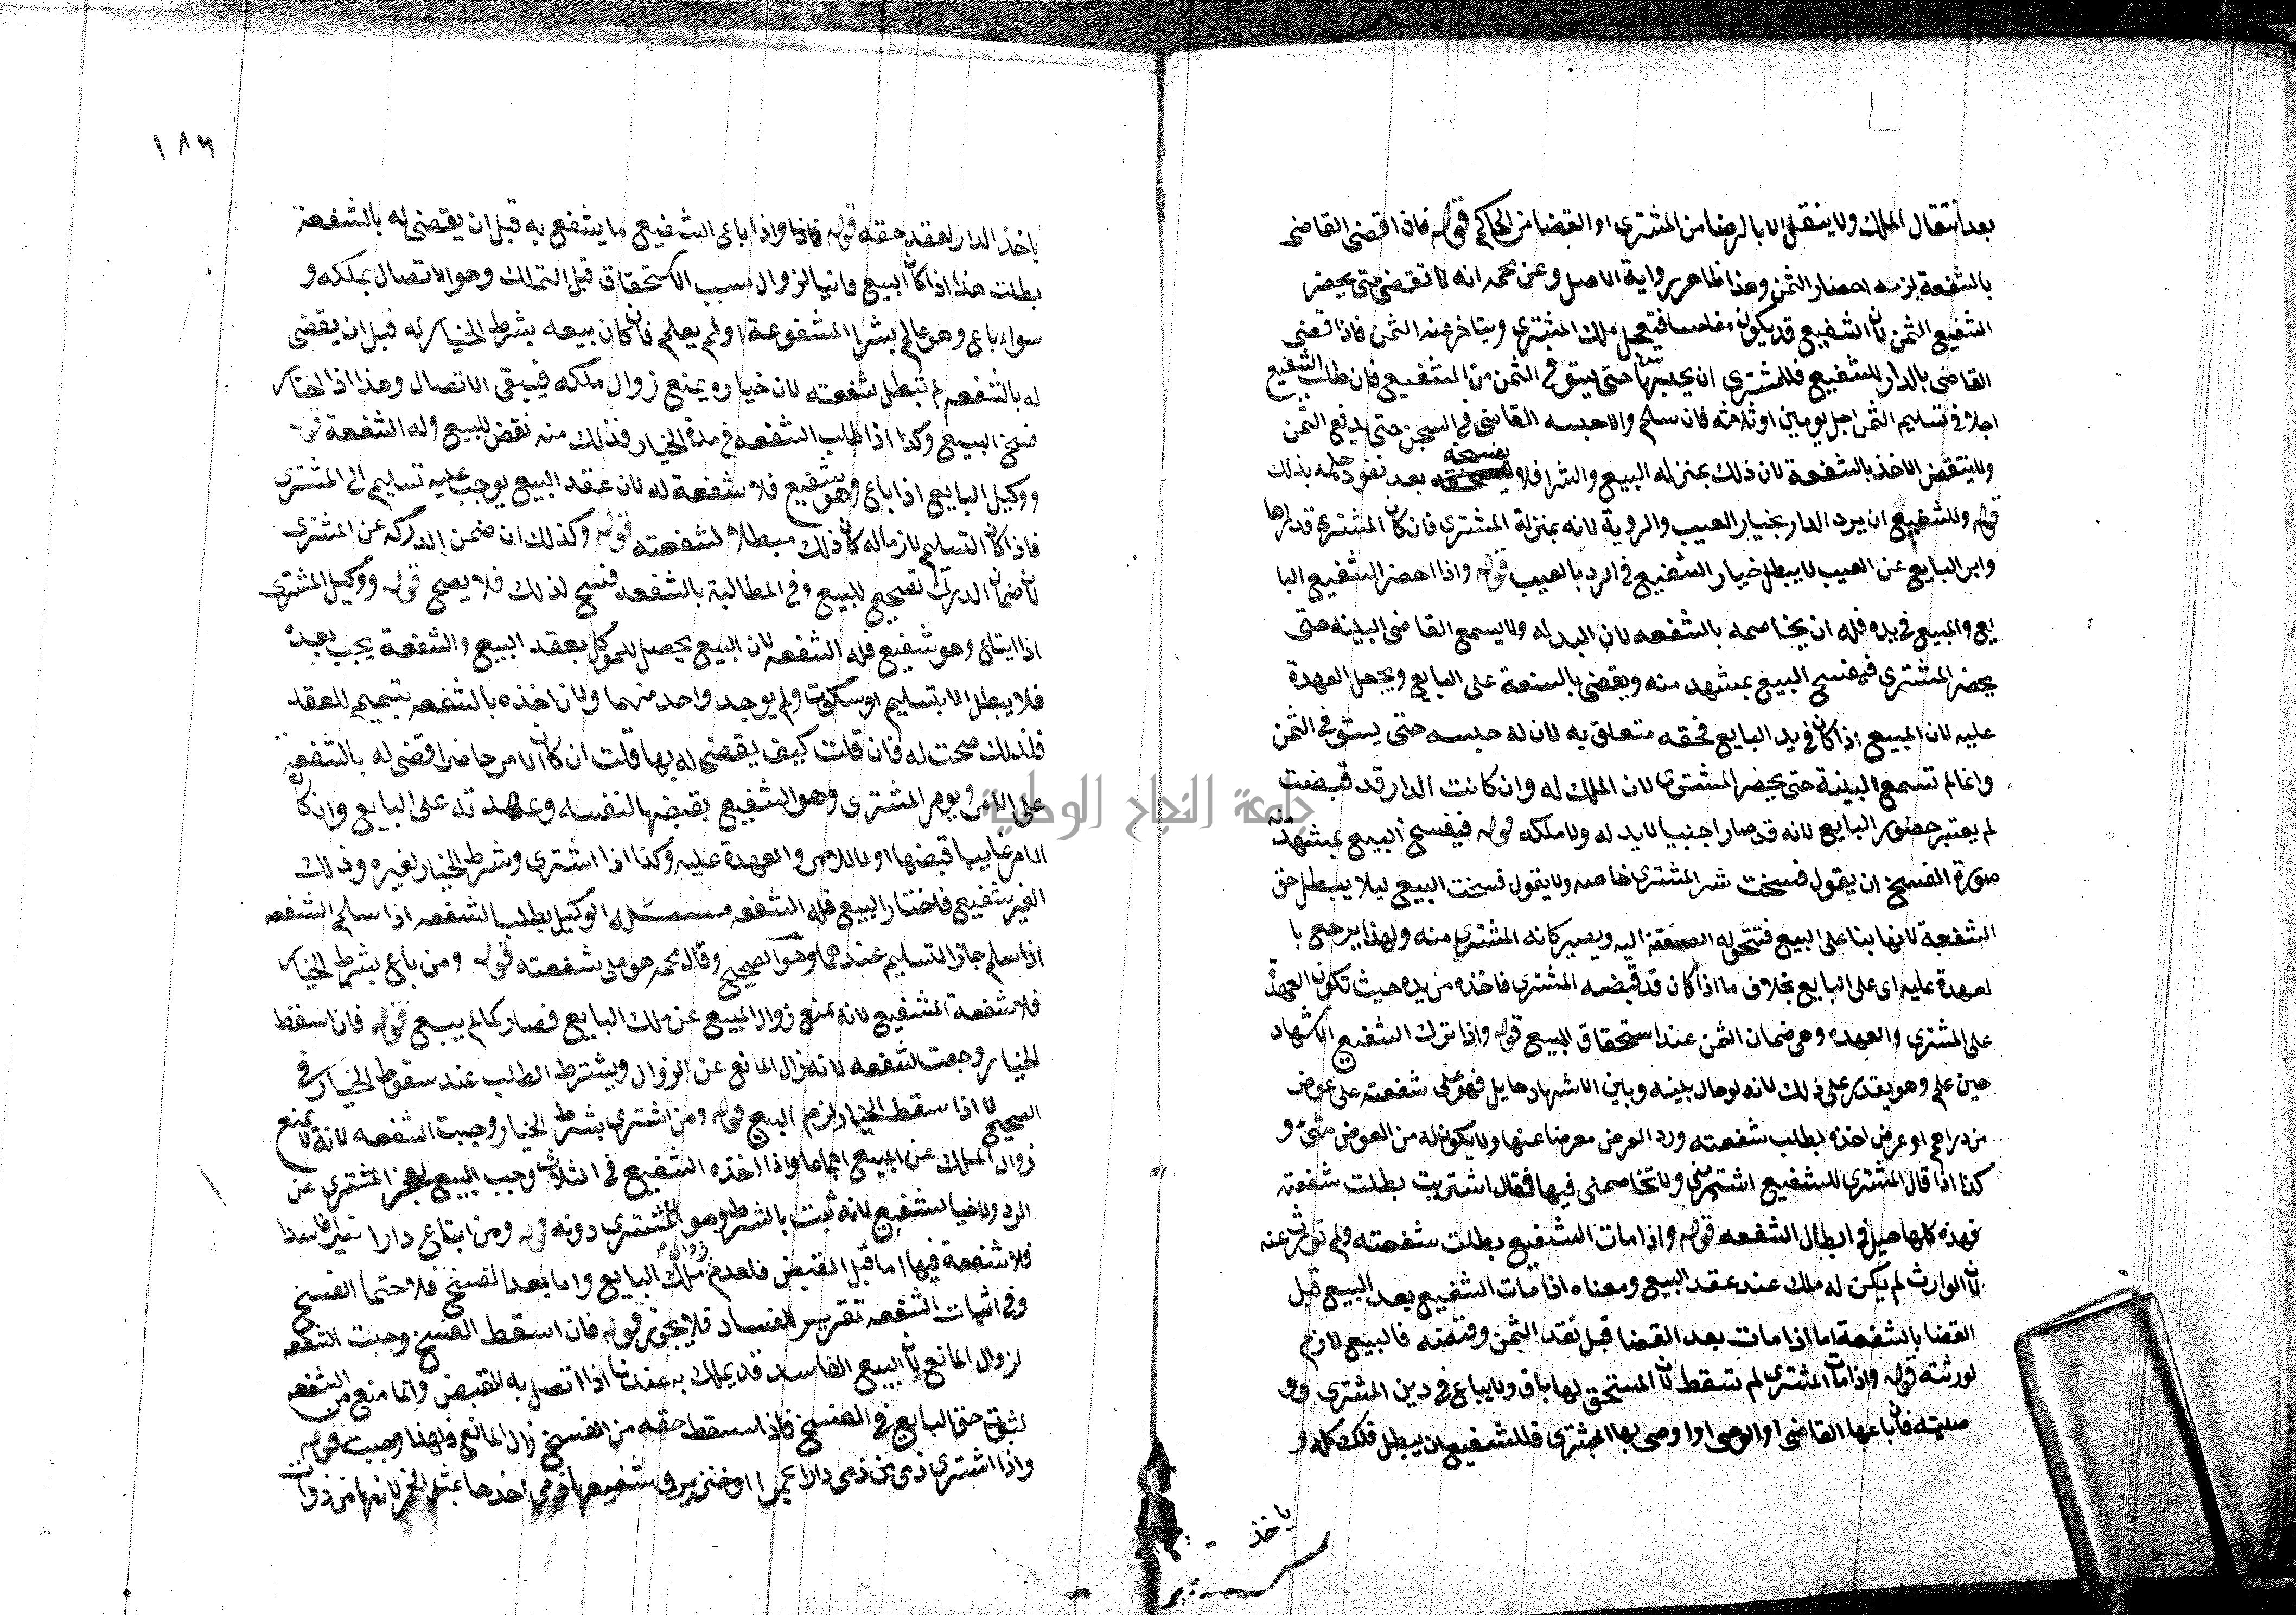 بعد انتقال الملك ولا ينتقل الا بالرضا من المشتري او القضا من الحاكم قوله فاذا قضى القاضي
بالشفعة لزمه احضار الثمن وهذا ظاهر رواية الاصل وعن محمد انه لا تقضى حتى يحضر
الشفيع الثمن لان الشفيع قد يكون مفلسا فتعجل ملك المشتري ويتاخر عنه الثمن فاذا قضى
القاضى بالدار للشفيع فللمشتري ان يحبسها حتى يستوفي الثمن من الشفيع فان طلب الشفيع
اجلا في تسليم الثمن اجل يومين او ثلاثه فان سلم والا حبسه القاضى في السجن حتى يدفع الثمن
ولا ينتقض الاخذ بالشفعة لان ذلك بمنزله البيع والشرا فلا يفسخه بعد نفود حكمه بذلك
قوله وللشفيع ان يرد الدار بخيار العيب والروية لانه بمنزلة المشتري فان كان المشتري قد راها
وابرا البايع عن العيب لا يبطل خيار الشفيع في الرد بالعيب قوله واذا احضر الشفيع البا
يع والمبيع في يده فله ان يخاصمه بالشفعه لان اليد له ولا يسمع القاضى البينه حتى
يحضر المشتري فيفسح البيع بمشهد منه ويقضى بالشفعة على البايع ويجعل العهدة
عليه لان المبيع اذا كان في يد البايع فحقه متعلق به لان له حبسه حتى يستوفي الثمن
وانما لم تسمع البينة حتى يحضر المشتري لان الملك له وان كانت الدار قد قبضت
لم يعتبر حضور البايع لانه قد صار اجنبيا لا يد له ولا ملكه قوله فيفسح البيع بمشهد منه
صورة الفسخ ان يقول فسخت شرا المشتري خاصه ولا يقول فسخت البيع ليلا يبطل حق
الشفعة لانها بنا على البيع فتتحول الصفقة اليه ويصير كانه المشتري منه ولهذا يرجع با
لعهدة عليه اى على البايع بخلاف ما اذا كان قد قبضه المشتري فاخذه من يده حيث تكون العهدة
على المشتري والعهده وهى ضمان الثمن عند استحقاق المبيع قوله واذا ترك الشفيع الاشهاد
حين علم وهو يقدر على ذلك لانه لو حال بينه وبين الاشهاد حايل فهو على شفعته على عوض
من دراهم او عرض اخذه بطلب شفعته ورد العوض معرضا عنها ولا يكون له من العوض شئ و
كذا اذا قال المشتري للشفيع اشتر منى ولا تخاصمنى فيها فقال اشتريت بطلت شفعته
فهذه كلها حيل في ابطال الشفعه قوله واذا مات الشفيع بطلت شفعته ولم تورث عنه
لان الوارث لم يكن له ملك عند عقد البيع ومعناه اذا مات الشفيع بعد البيع قبل
القضا بالشفعة اما اذا مات بعد القضا قبل نقد الثمن وقبضه فالبيع لازم
لورثته قوله واذا مات المشترى لم تسقط لان المستحق لها باق ولا يباع في دين المشترى وو
صيته فان باعها القاضى او الوصى او اوصى بها المشترى فللشفيع ان يبطل ذلك كله و
ياخذ
١٨٦
ياخذ الدار لعقد حقه قوله واذا باع الشفيع ما يشفع به قبل ان يقضى له بالشفعة
بطلت هذا اذا كان البيع باتا لزوال سبب الاستحقاق قبل التملك وهو الاتصال بملكه و
سواء باع وهو عالم بشرا المشفوعة او لم يعلم فان كان بيعه بشرط الخيار له قبل ان يقضى
له بالشفعه لم تبطل شفعته لان خياره يمنع زوال ملكه فيبقى الاتصال وهذا اذا اختار
فسخ البيع وكذا اذا طلب الشفعه في مدة الخيار فذلك منه نقض للبيع وله الشفعة قوله
ووكيل البايع اذا باع وهو شفيع فلا شفعة له لان عقد البيع يوجب عليه تسليم الى المشترى
فاذا كان التسليم لازماله كان ذلك مبطلا لشفعته قوله وكذلك ان ضمن الدرك عن المشترى
لان ضمان الدرك تصحيح للبيع وفي المطالبة بالشفعه فسخ لذلك فلا يصح قوله ووكيل المشترى
اذا ابتاع وهو شفيع فله الشفعه لان البيع يحصل للموكل بعقد البيع والشفعة يجب بعده
فلا يبطل الا بتسليم او سكوت ولم يوجد واحد منهما ولان اخذه بالشفعه تتميم للعقد
فلذلك صحت له فان قلت كيف يقضى له بها قلت ان كان الامر حاضرا قضى له بالشفعة
على الامر ويوم المشترى وهو الشفيع بقبضها لنفسه وعهدته على البايع وان كان
الامر غايبا قبضها اولا للامر والعهدة عليه وكذا اذا اشترى وشرط الخيار لغيره وذلك
الغير شفيع فاختار البيع فله الشفعه مسئله الوكيل بطلب الشفعه اذا سلم الشفعه
اذا سلم جاز التسليم عندهما وهو الصحيح وقال محمد هو على شفعته قوله ومن باع بشرط الخيار
فلا شفعة للشفيع لانه يمنع زوال المبيع عن ملك البايع فصار كما لم يبع قوله فان اسقط
الخيار وجبت الشفعه لانه زال المانع عن الزوال ويشترط الطلب عند سقوط الخيار في
الصحيح لا اذا سقط الخيار لزم البيع قوله ومن اشترى بشرط الخيار وجبت الشفعه لانه لا يمنع
زوال الملك عن المبيع اجماعا واذا اخذه الشفيع في الثلاث وجب البيع لعجز المشترى عن
الرد ولا خيار لشفيع لانه ثبت بالشرط وهو للمشترى دونه قوله ومن ابتاع دارا شرا فاسدا
فلا شفعة فيها اما قبل القبض فلعدم زوال ملك البايع واما بعد القبض فلاحتمال الفسخ
وفي اثبات الشفعه تقرير للفساد فلا يجوز قوله فان اسقط الفسخ وجبت الشفعه
لزوال المانع لان البيع الفاسد قد يملك به عندنا اذا اتصل به القبض وانما منع من الشفعه
لثبوت حق البايع في الفسخ فاذا سقط حقه من الفسخ زال المانع فلهذا وجبت قوله
واذا اشترى ذمى من ذمى دارا بخمر او خنزير وشفيعها ذمى اخذها بمثل الخمر لانها من ذوات
جامعة النجاح الوطنية